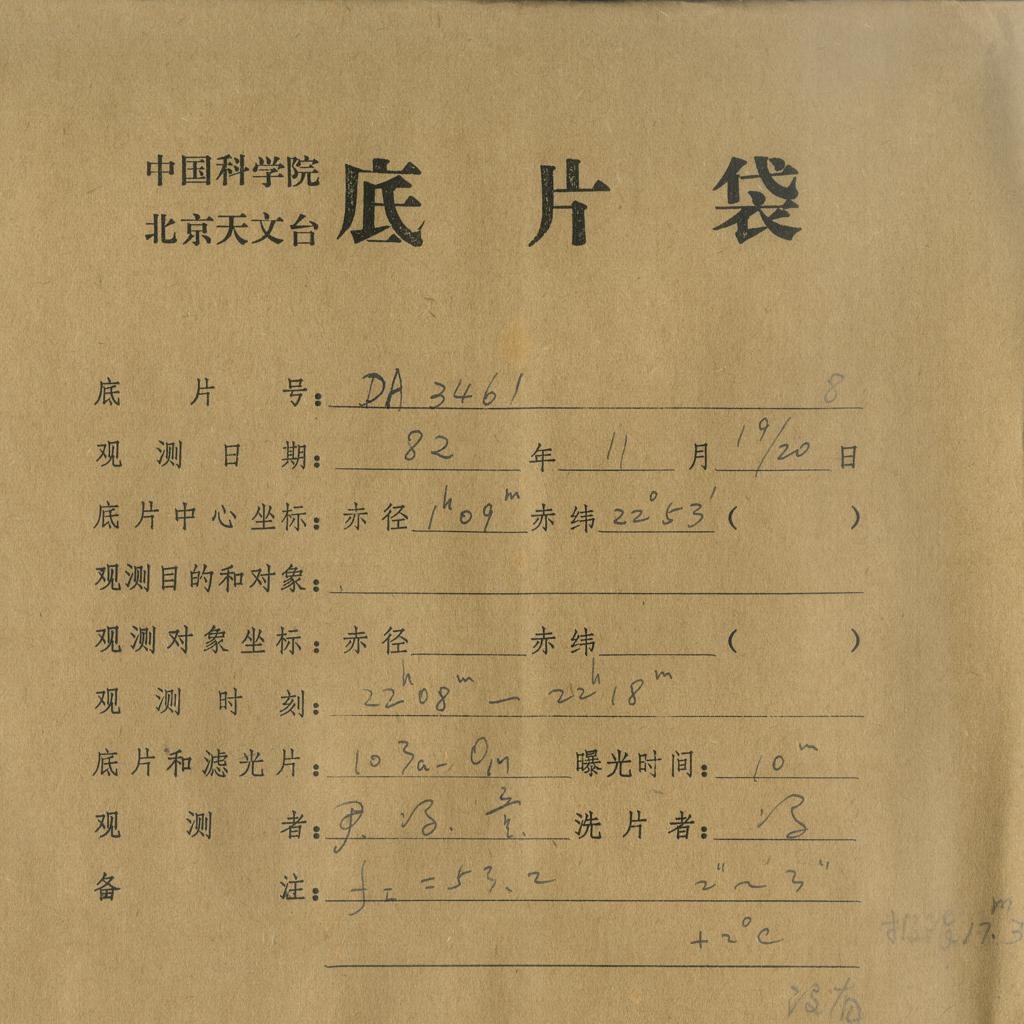 中国科学院
北京天文台
底片袋
底片号： DA 3461 8
观测日期： 82 年 11 月 19/20 日
底片中心坐标：赤径 1ʰ09ᵐ 赤纬 22°53′ ( )
观测目的和对象：
观测对象坐标：赤径 赤纬 ( )
观测时刻： 22ʰ08ᵐ — 22ʰ18ᵐ
底片和滤光片： 103a-O 曝光时间： 10ᵐ
观测者： 冯. 洗片者： 冯
备注： = 53.2 2″~3″
+2°C
17ᵐ.3
没有